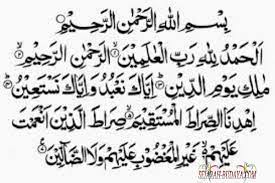 بِسْمِ اللهِ الرَّحْمٰنِ الرَّحِيْمِ
اَلْحَمْدُ لِلّٰهِ رَبِّ الْعٰلَمِيْنَ ۙ الرَّحْمٰنِ الرَّحِيْمِ ۙ
مٰلِكِ يَوْمِ الدِّيْنِ ۗ اِيَّاكَ نَعْبُدُ وَاِيَّاكَ نَسْتَعِيْنُ ۗ
اِهْدِنَا الصِّرَاطَ الْمُسْتَقِيْمَ ۙ صِرَاطَ الَّذِيْنَ اَنْعَمْتَ
عَلَيْهِمْ ەۙ غَيْرِ الْمَغْضُوْبِ عَلَيْهِمْ وَلَا الضَّآلِّيْنَ